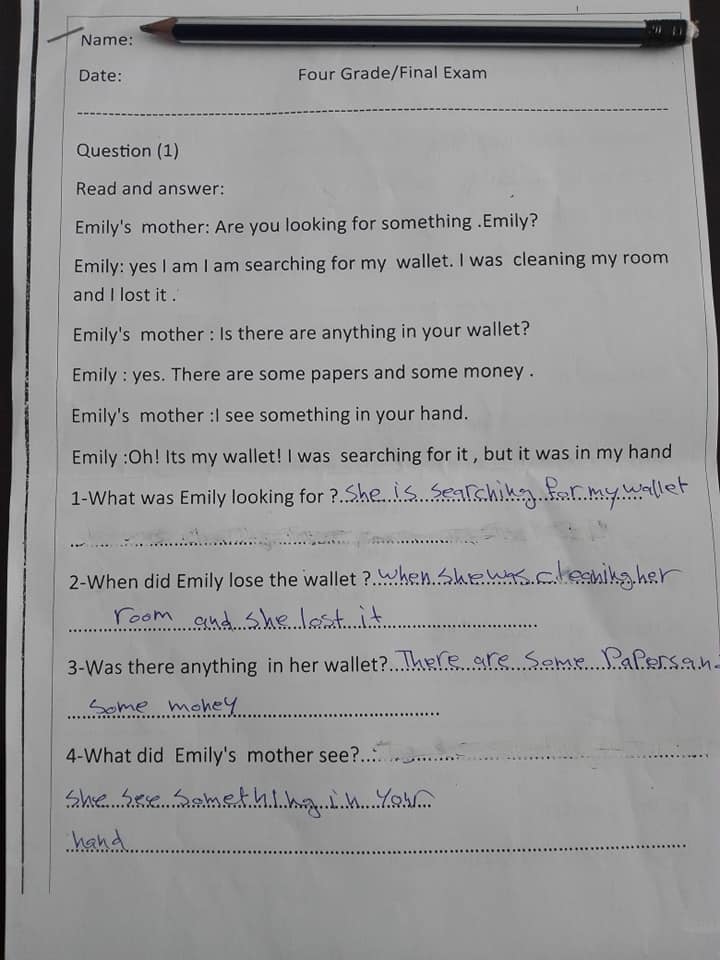 Name:
Date: Four Grade/Final Exam
Question (1)
Read and answer:
Emily's mother: Are you looking for something .Emily?
Emily: yes I am I am searching for my wallet. I was cleaning my room
and I lost it .
Emily's mother : Is there are anything in your wallet?
Emily : yes. There are some papers and some money .
Emily's mother :I see something in your hand.
Emily :Oh! Its my wallet! I was searching for it , but it was in my hand
1-What was Emily looking for ? She is searching for my wallet
2-When did Emily lose the wallet ? when she was cleaning her
room and she lost it
3-Was there anything in her wallet? There are some Papers an
some money
4-What did Emily's mother see?
She see something in your
hand